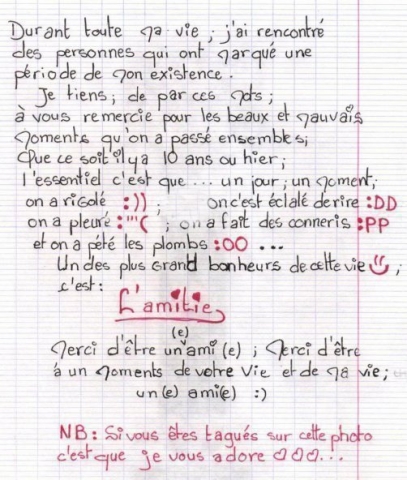 Durant toute ma vie ; j'ai rencontré
des personnes qui ont marqué une
période de mon existence.
Je tiens ; de par ces mots ;
à vous remercie pour les beaux et mauvais
moments qu'on a passé ensembles ;
Que ce soit il y a 10 ans ou hier ;
l'essentiel c'est que ... un jour ; un moment ;
on a rigolé :)) ; on c'est éclaté de rire :DD
on a pleuré :'''( ; on a fait des conneris :PP
et on a pété les plombs :OO ...
Un des plus Grand bonheurs de cette vie ;
c'est :
L'amitie
(e)
Merci d'être un ami (e) ; Merci d'être
à un moments de votre Vie et de ma vie ;
un(e) ami(e) :)
NB : Si vous êtes tagués sur cette photo
c'est que je vous adore ♡♡♡...